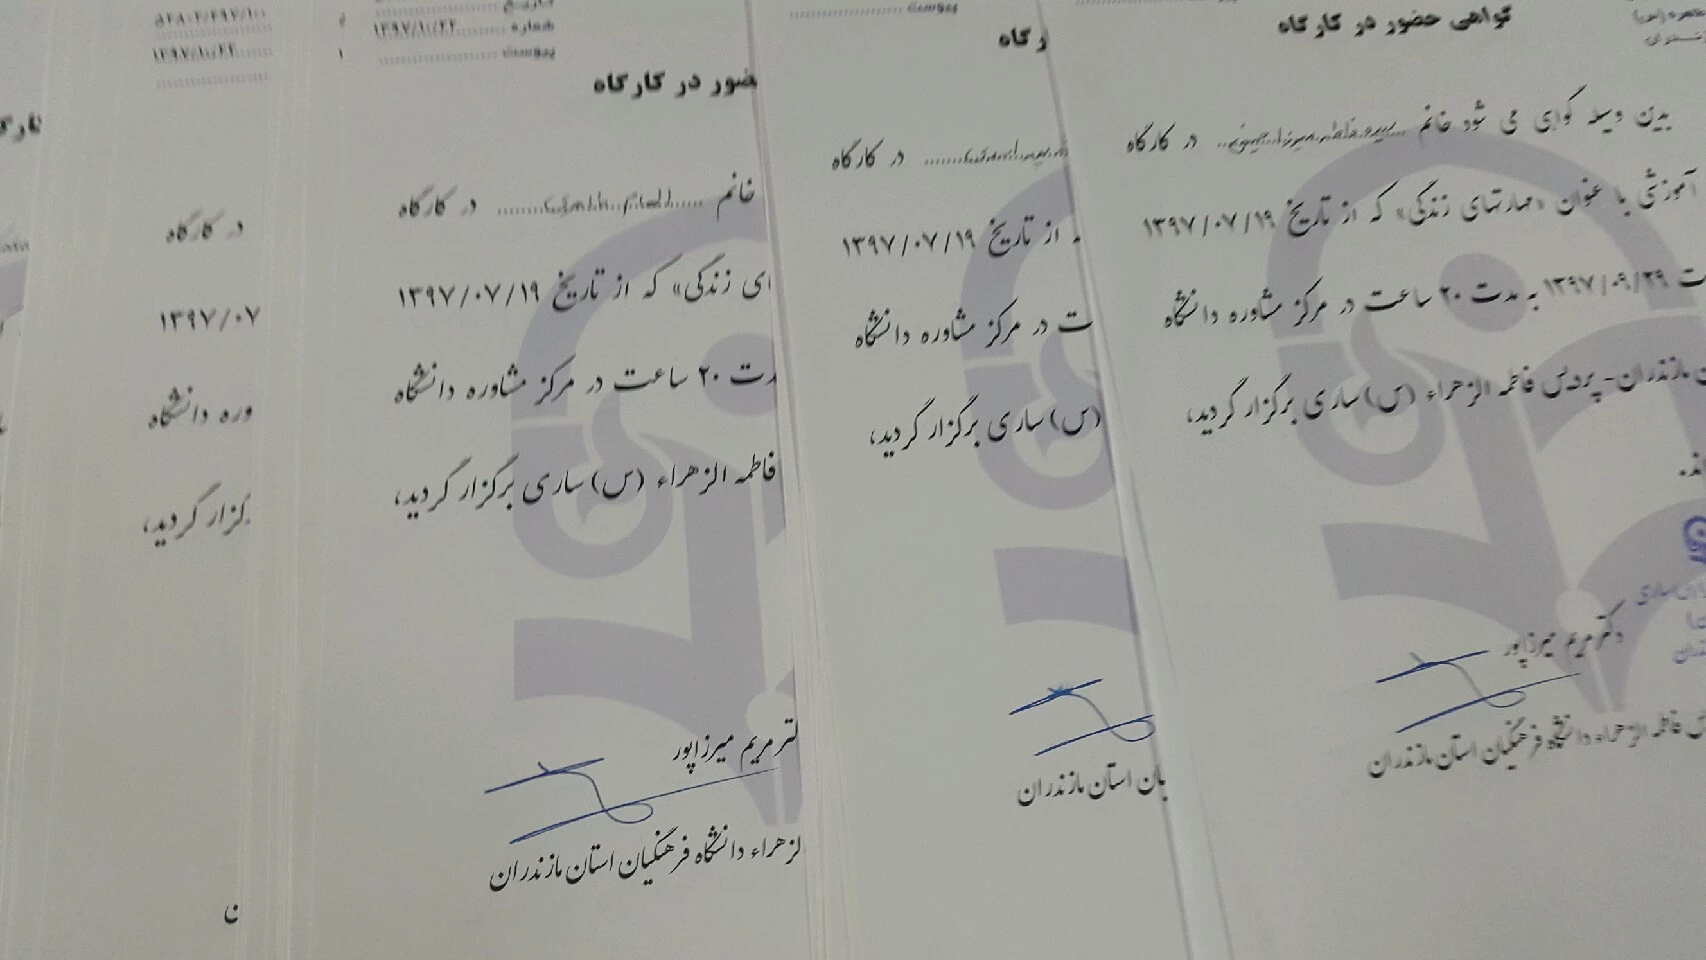 گواهی حضور در کارگاه
بدین وسیله گواهی می شود خانم سیده فاطمه میرزا حسینی در کارگاه
آموزشی با عنوان «مهارتهای زندگی» که از تاریخ ۱۳۹۷/۰۷/۱۹
ت ۱۳۹۷/۰۹/۲۹ به مدت ۲۰ ساعت در مرکز مشاوره دانشگاه
ن مازندران- پردیس فاطمه الزهراء (س) ساری برگزار گردید،
اند.
دکتر مریم میرزاپور
س فاطمه الزهراء دانشگاه فرهنگیان استان مازندران
پیوست
رگاه
در کارگاه
ه از تاریخ ۱۳۹۷/۰۷/۱۹
ت در مرکز مشاوره دانشگاه
(س) ساری برگزار گردید،
یان استان مازندران
تاریخ
شماره ۱۳۹۷/۱۰/۲۲
پیوست
ضور در کارگاه
خانم در کارگاه
ای زندگی» که از تاریخ ۱۳۹۷/۰۷/۱۹
مدت ۲۰ ساعت در مرکز مشاوره دانشگاه
فاطمه الزهراء (س) ساری برگزار گردید،
کتر مریم میرزاپور
لزهراء دانشگاه فرهنگیان استان مازندران
۱۳۹۷/۱۰/۲۲
در کارگاه
۱۳۹۷/۰۷
وره دانشگاه
گزار گردید،
ن